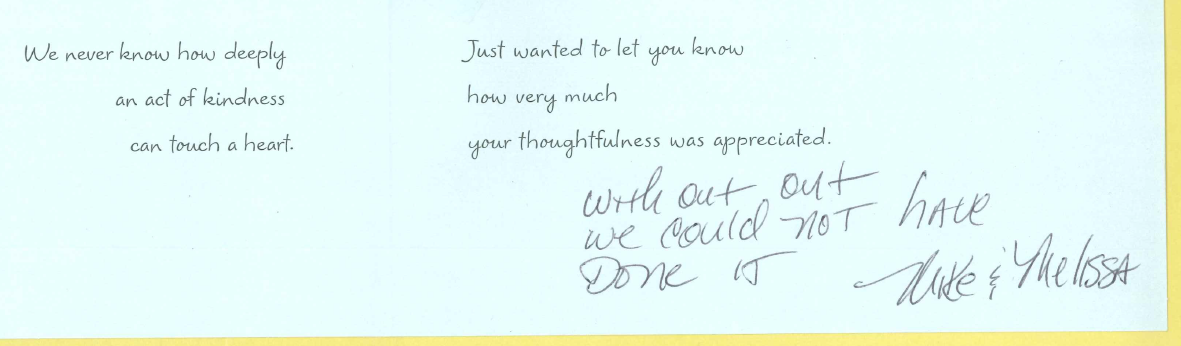 We never know how deeply
an act of kindness
can touch a heart.
Just wanted to let you know
how very much
your thoughtfulness was appreciated.
without out
we could not have
Done it
Mike & Melissa